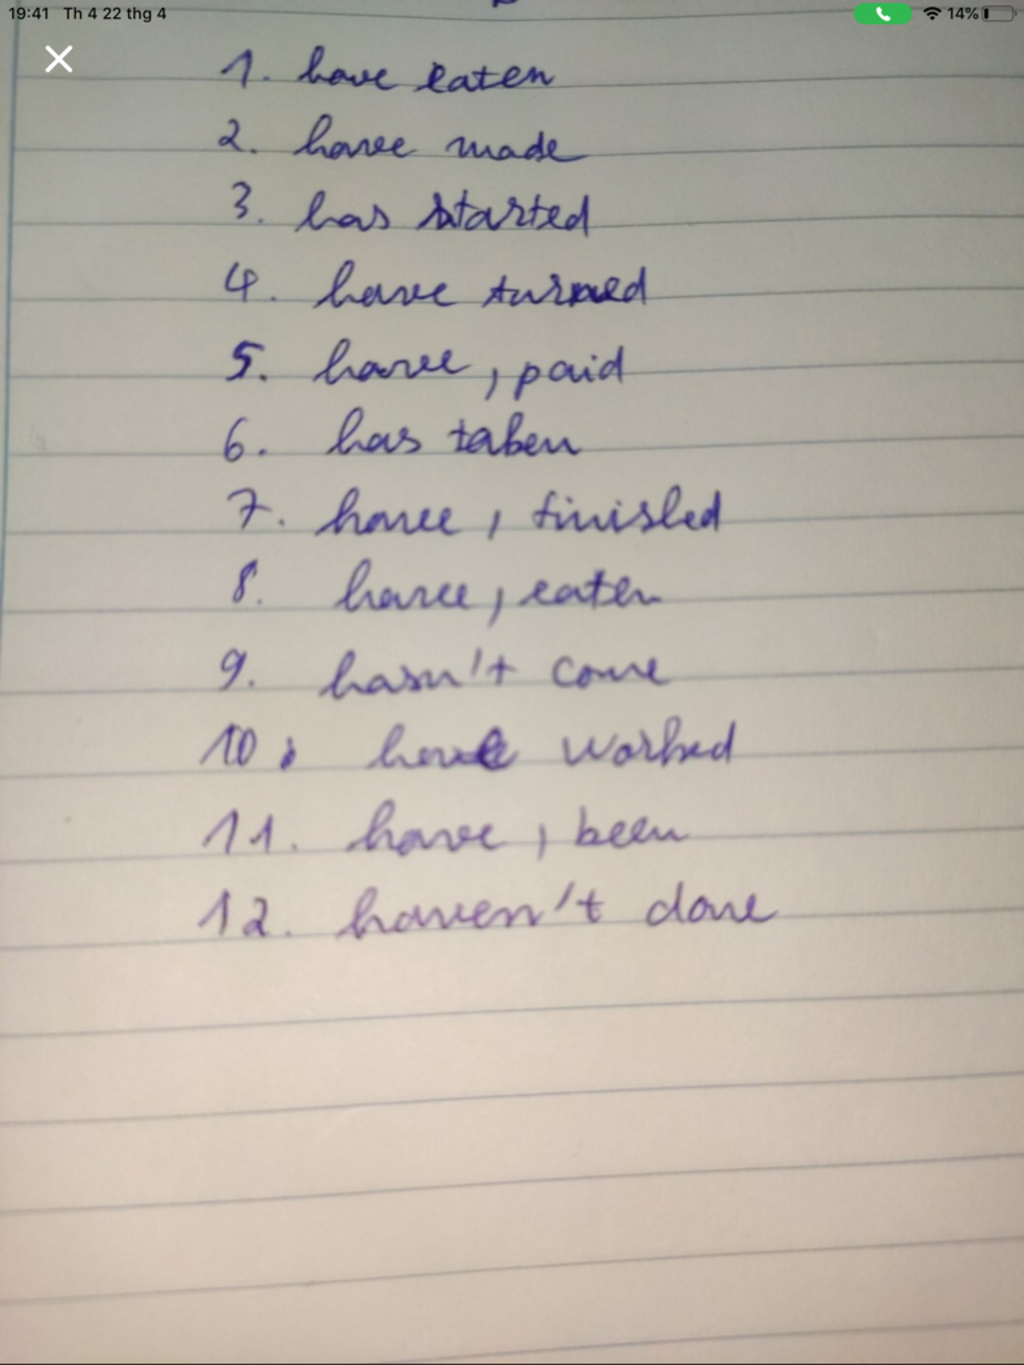 19:41 Th 4 22 thg 4 14%
1. have eaten
2. have made
3. has started
4. have turned
5. have, paid
6. has taken
7. have, finished
8. have, eaten
9. hasn't come
10. have worked
11. have, been
12. haven't done